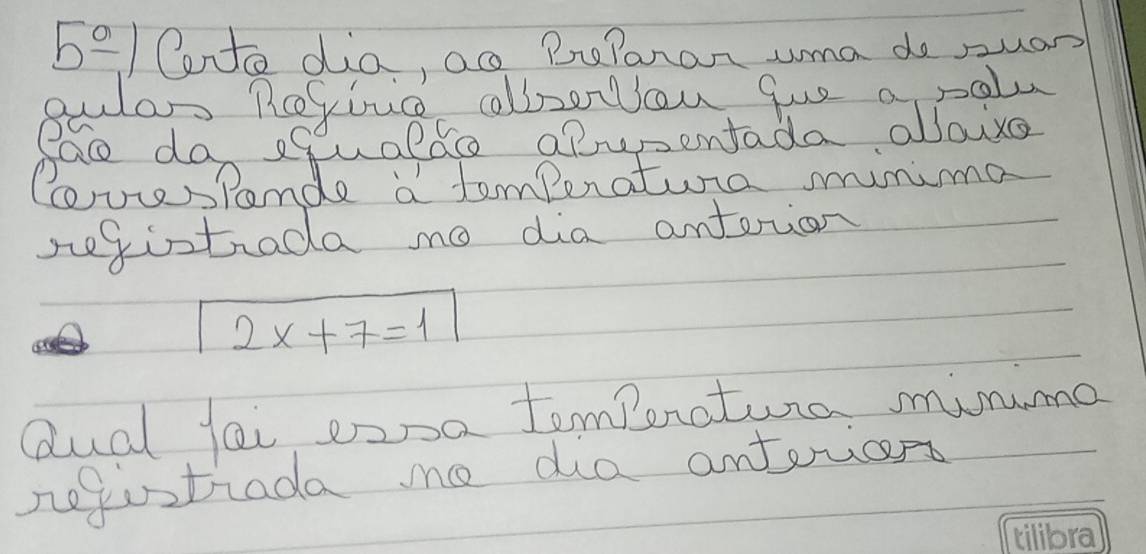 5º) Certo dia, ao Preparar uma de suas
aulas Rogério observou que a solu
ção da equação apresentada abaixo
Corresponde à temperatura minima
registrada no dia anterior
2x+7=1
Qual foi essa temperatura minima
registrada no dia anterior
tilibra